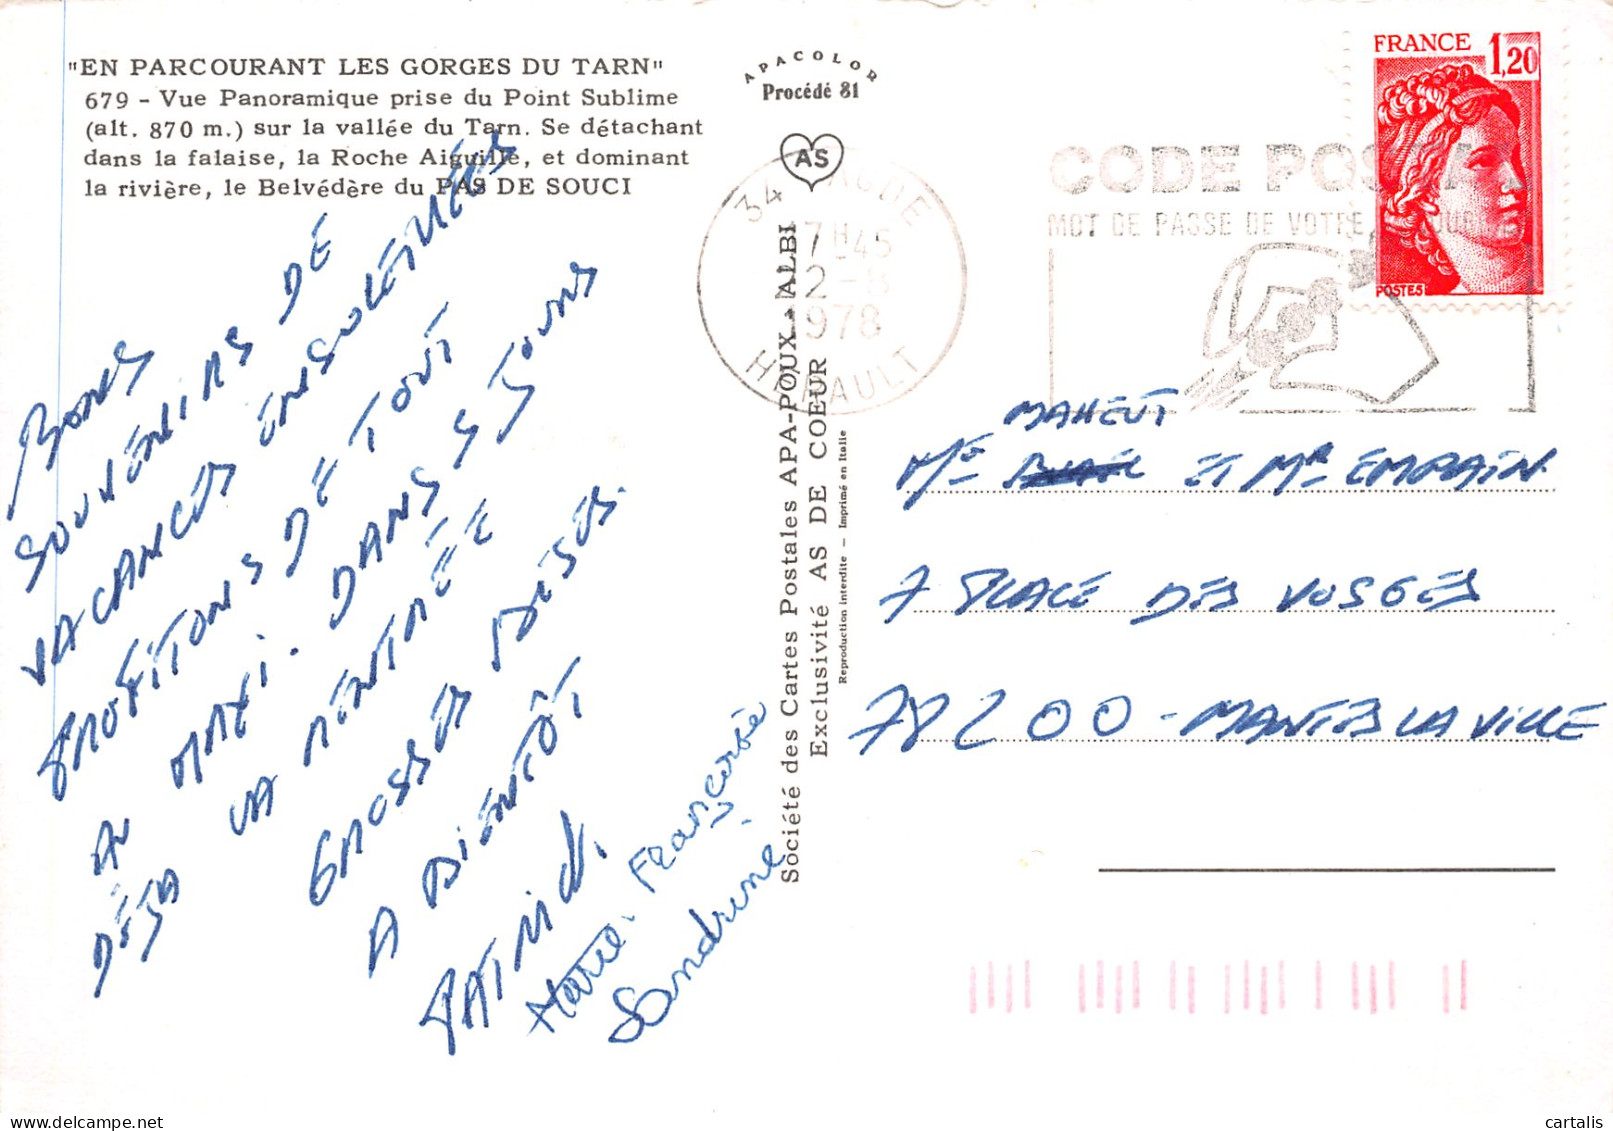 "EN PARCOURANT LES GORGES DU TARN"
679 - Vue Panoramique prise du Point Sublime
(alt. 870 m.) sur la vallée du Tarn. Se détachant
dans la falaise, la Roche Aiguille, et dominant
la rivière, le Belvédère du PAS DE SOUCI
BONS
SOUVENIRS DE
VACANCES ENSOLEILLÉES
PROFITONS DE TOUT
AU MAXI. DANS 5 JOURS
DÉJA LA RENTRÉE
GROSSES BISES.
A BIENTÔT
PATRICK.
Marie-Françoise
Sandrine
APACOLOR
Procédé 81
AS
Société des Cartes Postales APA-POUX - ALBI
Exclusivité AS DE COEUR
Reproduction interdite - Imprimé en Italie
34 AGDE
17H45
2-8
1978
HERAULT
CODE POSTAL
MOT DE PASSE DE VOTRE
FRANCE 1,20
POSTES
MAHEUT
Me ET Mr EMPRAIN
7 PLACE DES VOSGES
78200 - MANTES LA VILLE
cartalis